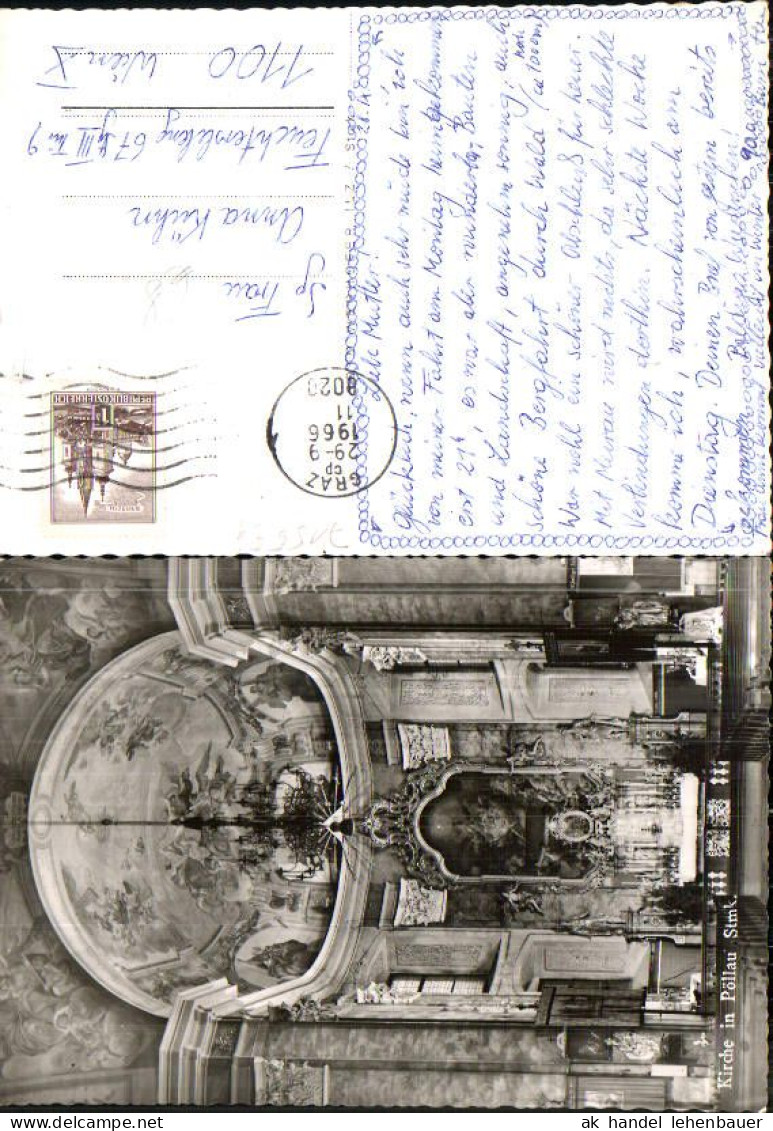 28.9.
Liebe Mutter!
Glücklich, wenn auch sehr müde bin ich
von meiner Fahrt am Montag heimgekommen
erst 21h es war aber wunderbar, Bauten
und Landschaft, angenehm sonnig, auch
schöne Bergfahrt durch Wald (ca 1000m)
War wohl ein schöner Abschluß für heuer.
Mit Murau wird nichts, da sehr schlechte
Verbindungen dorthin. Nächste Woche
komme ich, wahrscheinlich am
Dienstag. Deinen Brief von gestern bereits
Sg Frau
Anna Kühn
67 III 9
1100 Wien X
REPUBLIK ÖSTERREICH
1
GRAZ
cp
29-9
1966
11
8020
Kirche in Pöllau Stmk.
ak handel lehenbauer